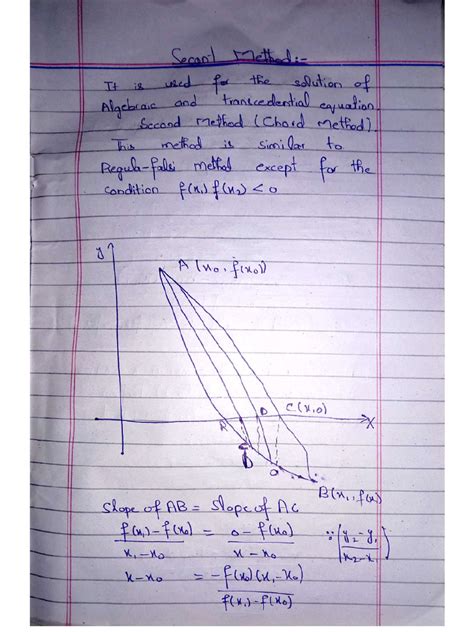 Secant Method:-
It is used for the solution of
Algebraic and transcedential equation.
Second Method (Chord Method).
This method is similar to
Regula-falsi method except for the
condition f(x₁) f(x₂) < 0
y
A (x₀, f(x₀))
R D C(x,0) X
B(x₁, f(x₁)
Slope of AB = Slope of AC
f(x₁) - f(x₀) / x₁ - x₀ = 0 - f(x₀) / x - x₀ ∵ (y₂ - y₁ / x₂ - x₁)
x - x₀ = -f(x₀)(x₁ - x₀) / f(x₁) - f(x₀)